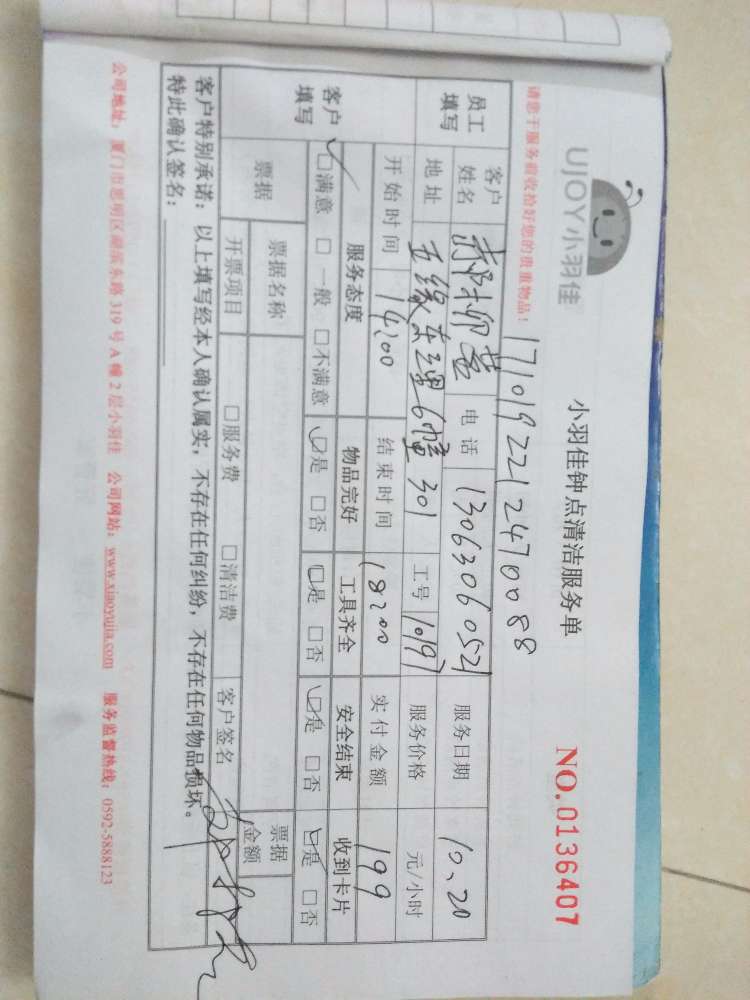 UJOY小羽佳
小羽佳钟点清洁服务单
NO.0136407
请您于服务前收拾好您的贵重物品!
1710192212470088
员工填写
客户姓名 电话 13063060521 服务日期 10、20
地址 五缘东里6幢301 工号 10197 服务价格 元/小时
开始时间 14:00 结束时间 18:00 实付金额 199
客户填写
服务态度 物品完好 工具齐全 安全结束 收到卡片
□满意 □一般 □不满意 □是 □否 □是 □否 □是 □否 □是 □否
票据 票据名称 票据金额
开票项目 □服务费 □清洁费 客户签名
客户特别承诺:以上填写经本人确认属实,不存在任何纠纷,不存在任何物品损坏。
特此确认签名:
公司地址:厦门市思明区湖滨东路319号A幢2层小羽佳 公司网站:www.xiaoyujia.com 服务监督热线:0592-5888123